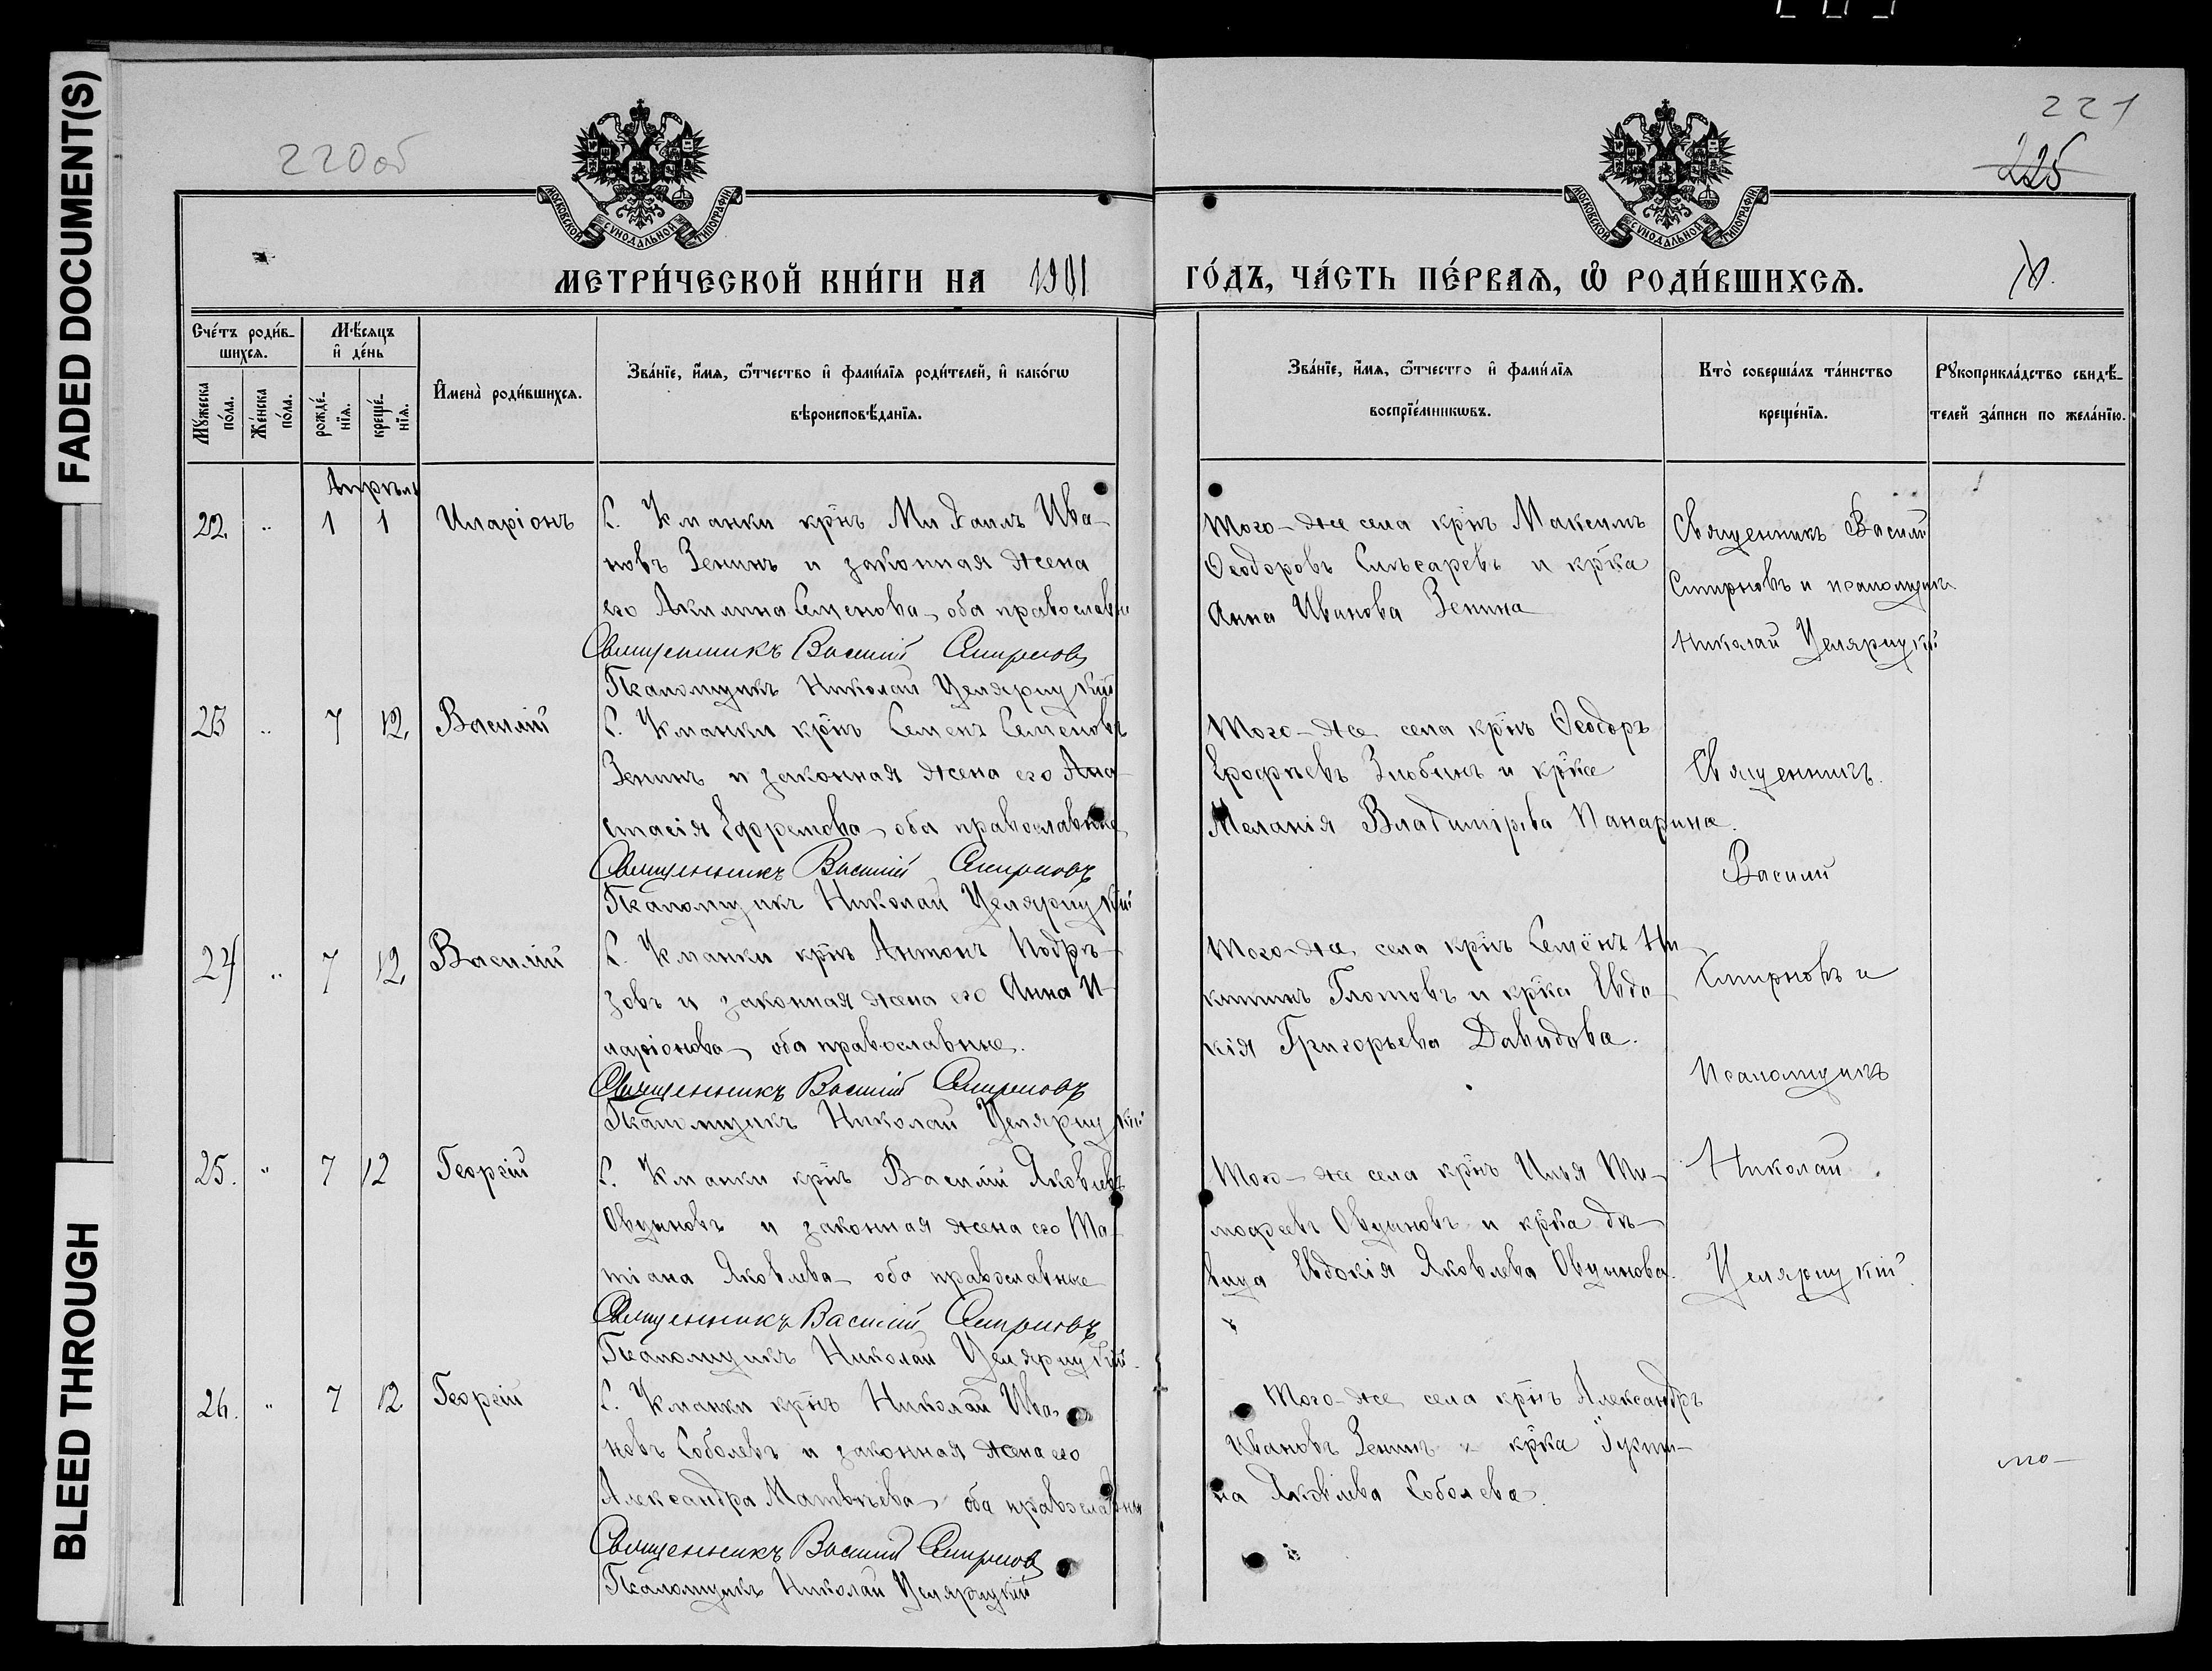 FADED DOCUMENT(S)
BLEED THROUGH
220 об
221
225
МОСКОВСКОЙ СѴНОДАЛЬНОЙ ТИПОГРАФІИ
МОСКОВСКОЙ СѴНОДАЛЬНОЙ ТИПОГРАФІИ
МЕТРИ́ЧЕСКОЙ КНИ́ГИ НА 1901
ГО́ДЪ, ЧА́СТЬ ПЕ́РВАѦ, Ѽ РОДИ́ВШИХСѦ.
Сче́тъ роди́в-
шихсѧ.
Мꙋжеска по́ла.
Же́нска по́ла.
Мѣ́сѧцъ
и҆ де́нь
рожде́-
нїѧ.
креще́-
нїѧ.
И҆мена̀ роди́вшихсѧ.
Зва́нїе, и҆́мѧ, ѻ҆́тчество и҆ фами́лїѧ роди́телей, и҆ како́гѡ
вѣроисповѣ́данїѧ.
Зва́нїе, и҆́мѧ, ѻ҆́тчество и҆ фами́лїѧ
воспрїе́мникѡвъ.
Кто̀ соверша́лъ та́инство
креще́нїѧ.
Рꙋкоприкла́дство свидѣ́-
телей за́писи по жела́нїю.
Апрѣль
22. " 1 1 Иларіонъ С. Кманки крнъ Михаилъ Ива-
новъ Зенинъ и законная жена
его Акилина Семенова, оба православн
Священникъ Василій Смирновъ
Псаломщикъ Николай Целярицкій
Того-же села крнъ Максимъ
Ѳеодоровъ Слѣсаревъ и крка
Анна Иванова Зенина
Священникъ Василій
Смирновъ и псаломщикъ
Николай Целярицкій
23 " 7 12 Василій С. Кманки крнъ Семенъ Семеновъ
Зенинъ и законная жена его Ана-
стасія Ефремова, оба православные
Священникъ Василій Смирновъ
Псаломщикъ Николай Целярицкій
Того-же села крнъ Ѳеодоръ
Ерофѣевъ Злобинъ и крка
Меланія Владимірова Панарина.
Священникъ
Василій
24 " 7 12 Василій С. Кманки крнъ Антонъ Подрѣ-
зовъ и законная жена его Анна И-
ларіонова, оба православные.
Священникъ Василій Смирновъ
Псаломщикъ Николай Целярицкій
Того-же села крнъ Семёнъ Ни-
китинъ Глотовъ и крка Евдо-
кія Григорьева Давидова.
Смирновъ и
Псаломщикъ
25. " 7 12 Георгій С. Кманки крнъ Василій Яковлевъ
Овчинновъ и законная жена его Та-
тіана Яковлева, оба православные
Священникъ Василій Смирновъ
Псаломщикъ Николай Целярицкій.
Того-же села крнъ Илья Ти-
мофеевъ Овчинновъ и крка дѣ-
вица Евдокія Яковлева Овчиннова.
Николай
Целярицкій.
26. " 7 12 Георгій С. Кманки крнъ Николай Ива-
новъ Соболевъ и законная жена его
Александра Матвѣева, оба православны
Священникъ Василій Смирновъ
Псаломщикъ Николай Целярицкій
Того-же села крнъ Александръ
Ивановъ Зенинъ и крка
на Яковлева Соболева.